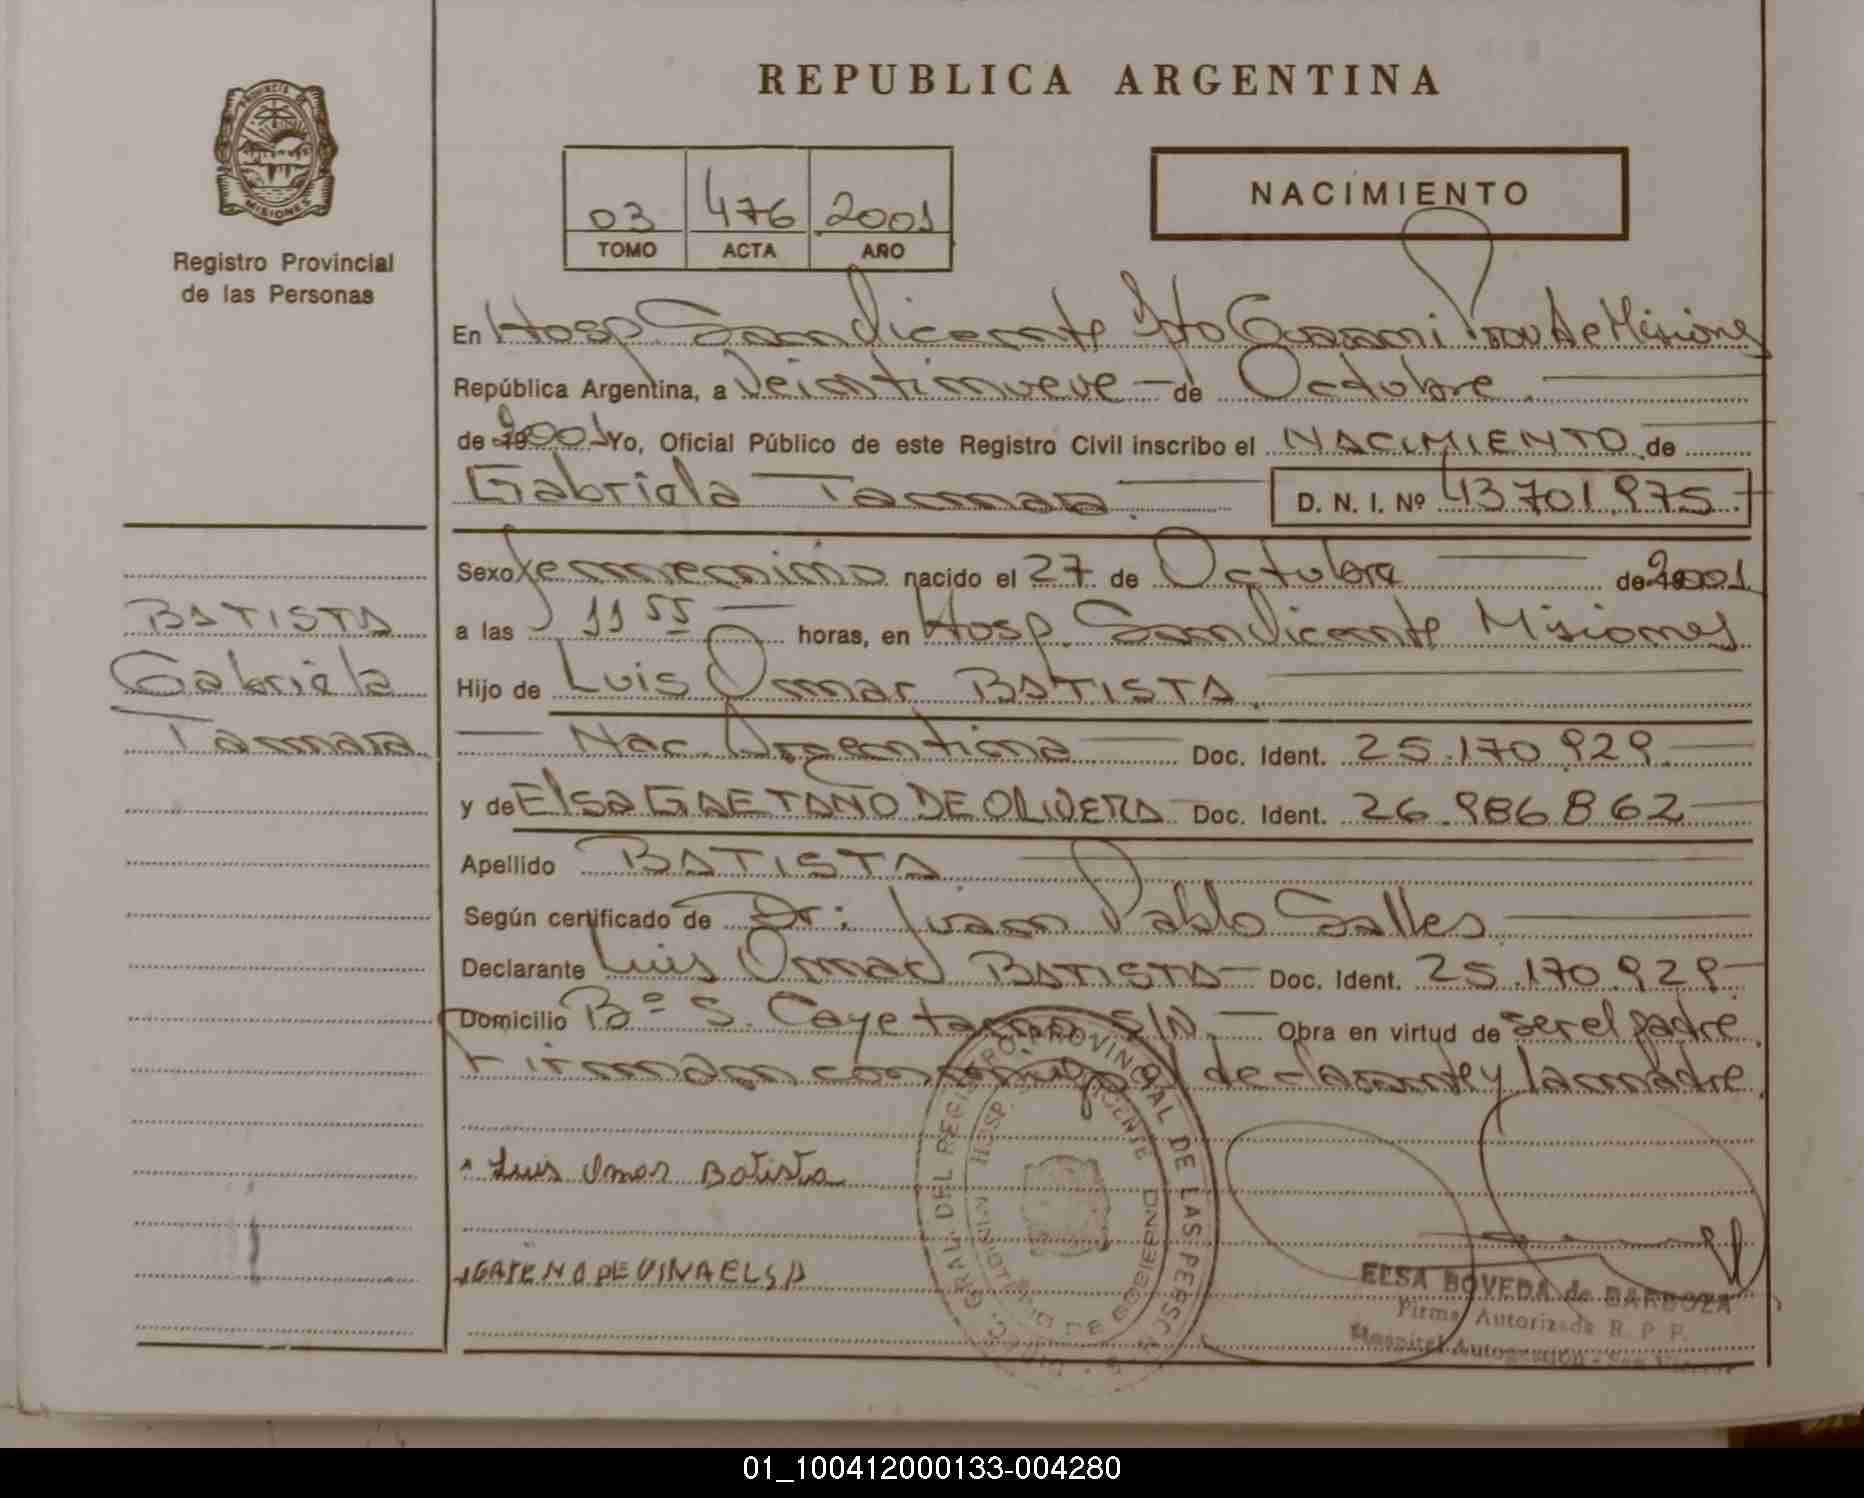 REPUBLICA ARGENTINA
PROVINCIA DE
MISIONES
Registro Provincial
de las Personas
03 476 2001
TOMO ACTA AÑO
NACIMIENTO
En Hosp. San Vicente Dpto Guarani Prov de Misiones
República Argentina, a Veintinueve - de Octubre.
de 2001 Yo, Oficial Público de este Registro Civil inscribo el NACIMIENTO de
Gabriela Tamara. D. N. I. Nº 43.701.975.-
Sexo femenino nacido el 27 de Octubre de 2001
a las 11 55 horas, en Hosp. San Vicente Misiones
Hijo de Luis Omar BATISTA.
Nac. Argentina Doc. Ident. 25.170.929.
y de Elsa GAETANO DE OLIVERA Doc. Ident. 26.986.862
Apellido BATISTA
Según certificado de Dr: Juan Pablo Salles
Declarante Luis Omar BATISTA Doc. Ident. 25.170.929
Domicilio Bº S. Cayetano S/N. Obra en virtud de ser el padre.
Firman conmigo el declarante y la madre.
BATISTA
Gabriela
Tamara
Luis Omar Batista
DIREC. GRAL. DEL REGISTRO PROVINCIAL DE LAS PERSONAS
HOSP. VICENTE
DE GOBIERNO
ELSA BOVEDA de BARBOZA
Firma Autorizada R. P. P.
Hospital Autogestión - San Vicente
01_100412000133-004280